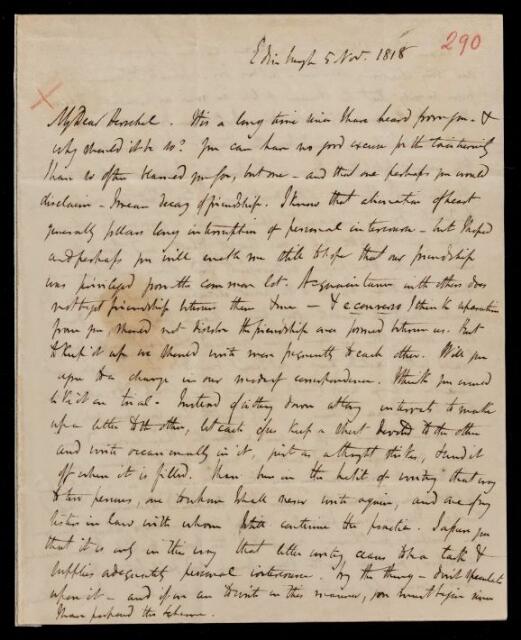 290
Edinburgh 5 Nov. 1818
My Dear Herschel. It is a long time since I have heard from you - &
why should it be so? You can have no good excuse for the taciturnity
I have so often blamed you for, but one - and that one perhaps you would
disclaim - I mean decay of friendship. I know that alienation of heart
generally follows long interruption of personal intercourse - but I hoped
and perhaps you will enable me still to hope that our friendship
was privileged from the common lot. Acquaintance with others does
not beget friendship between them & me - & e converso I think separation
from you should not dissolve the friendship once formed between us. But
to keep it up we should write more frequently to each other. Will you
agree to a change in our mode of correspondence. I think you would
like it on trial - Instead of sitting down at long intervals to make
up a letter to the other, let each of us keep a sheet devoted to the other
and write occasionally in it, just as a thought strikes, & send it
off when it is filled. I have been in the habit of writing that way
to two persons, one to whom I shall never write again, and one of my
sisters in law with whom I still continue the practice. I assure you
that it is only in this way that letter writing ceases to be a task &
supplies adequately personal intercourse. Try the thing - don't speculate
upon it - and if we are to write in this manner, you must begin since
I have proposed the scheme.